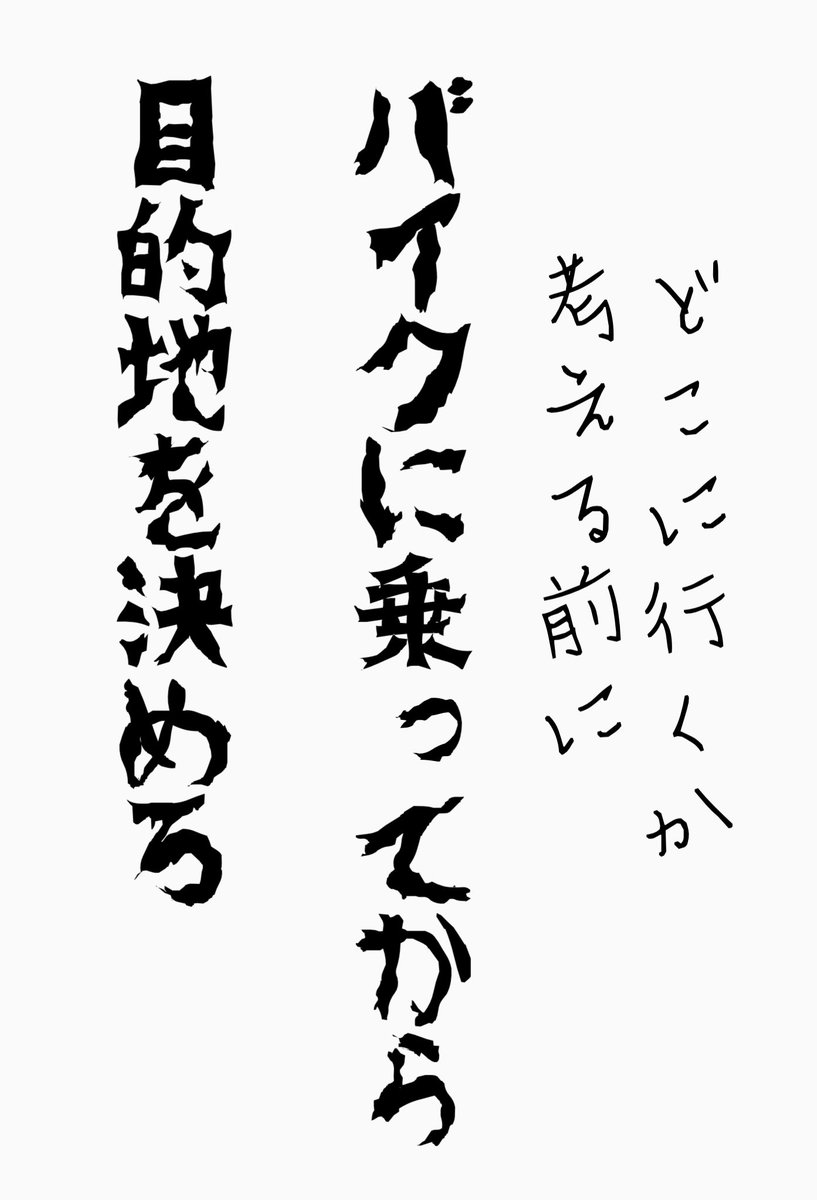 どこに行くか
考える前に
バイクに乗ってから
目的地を決めろ